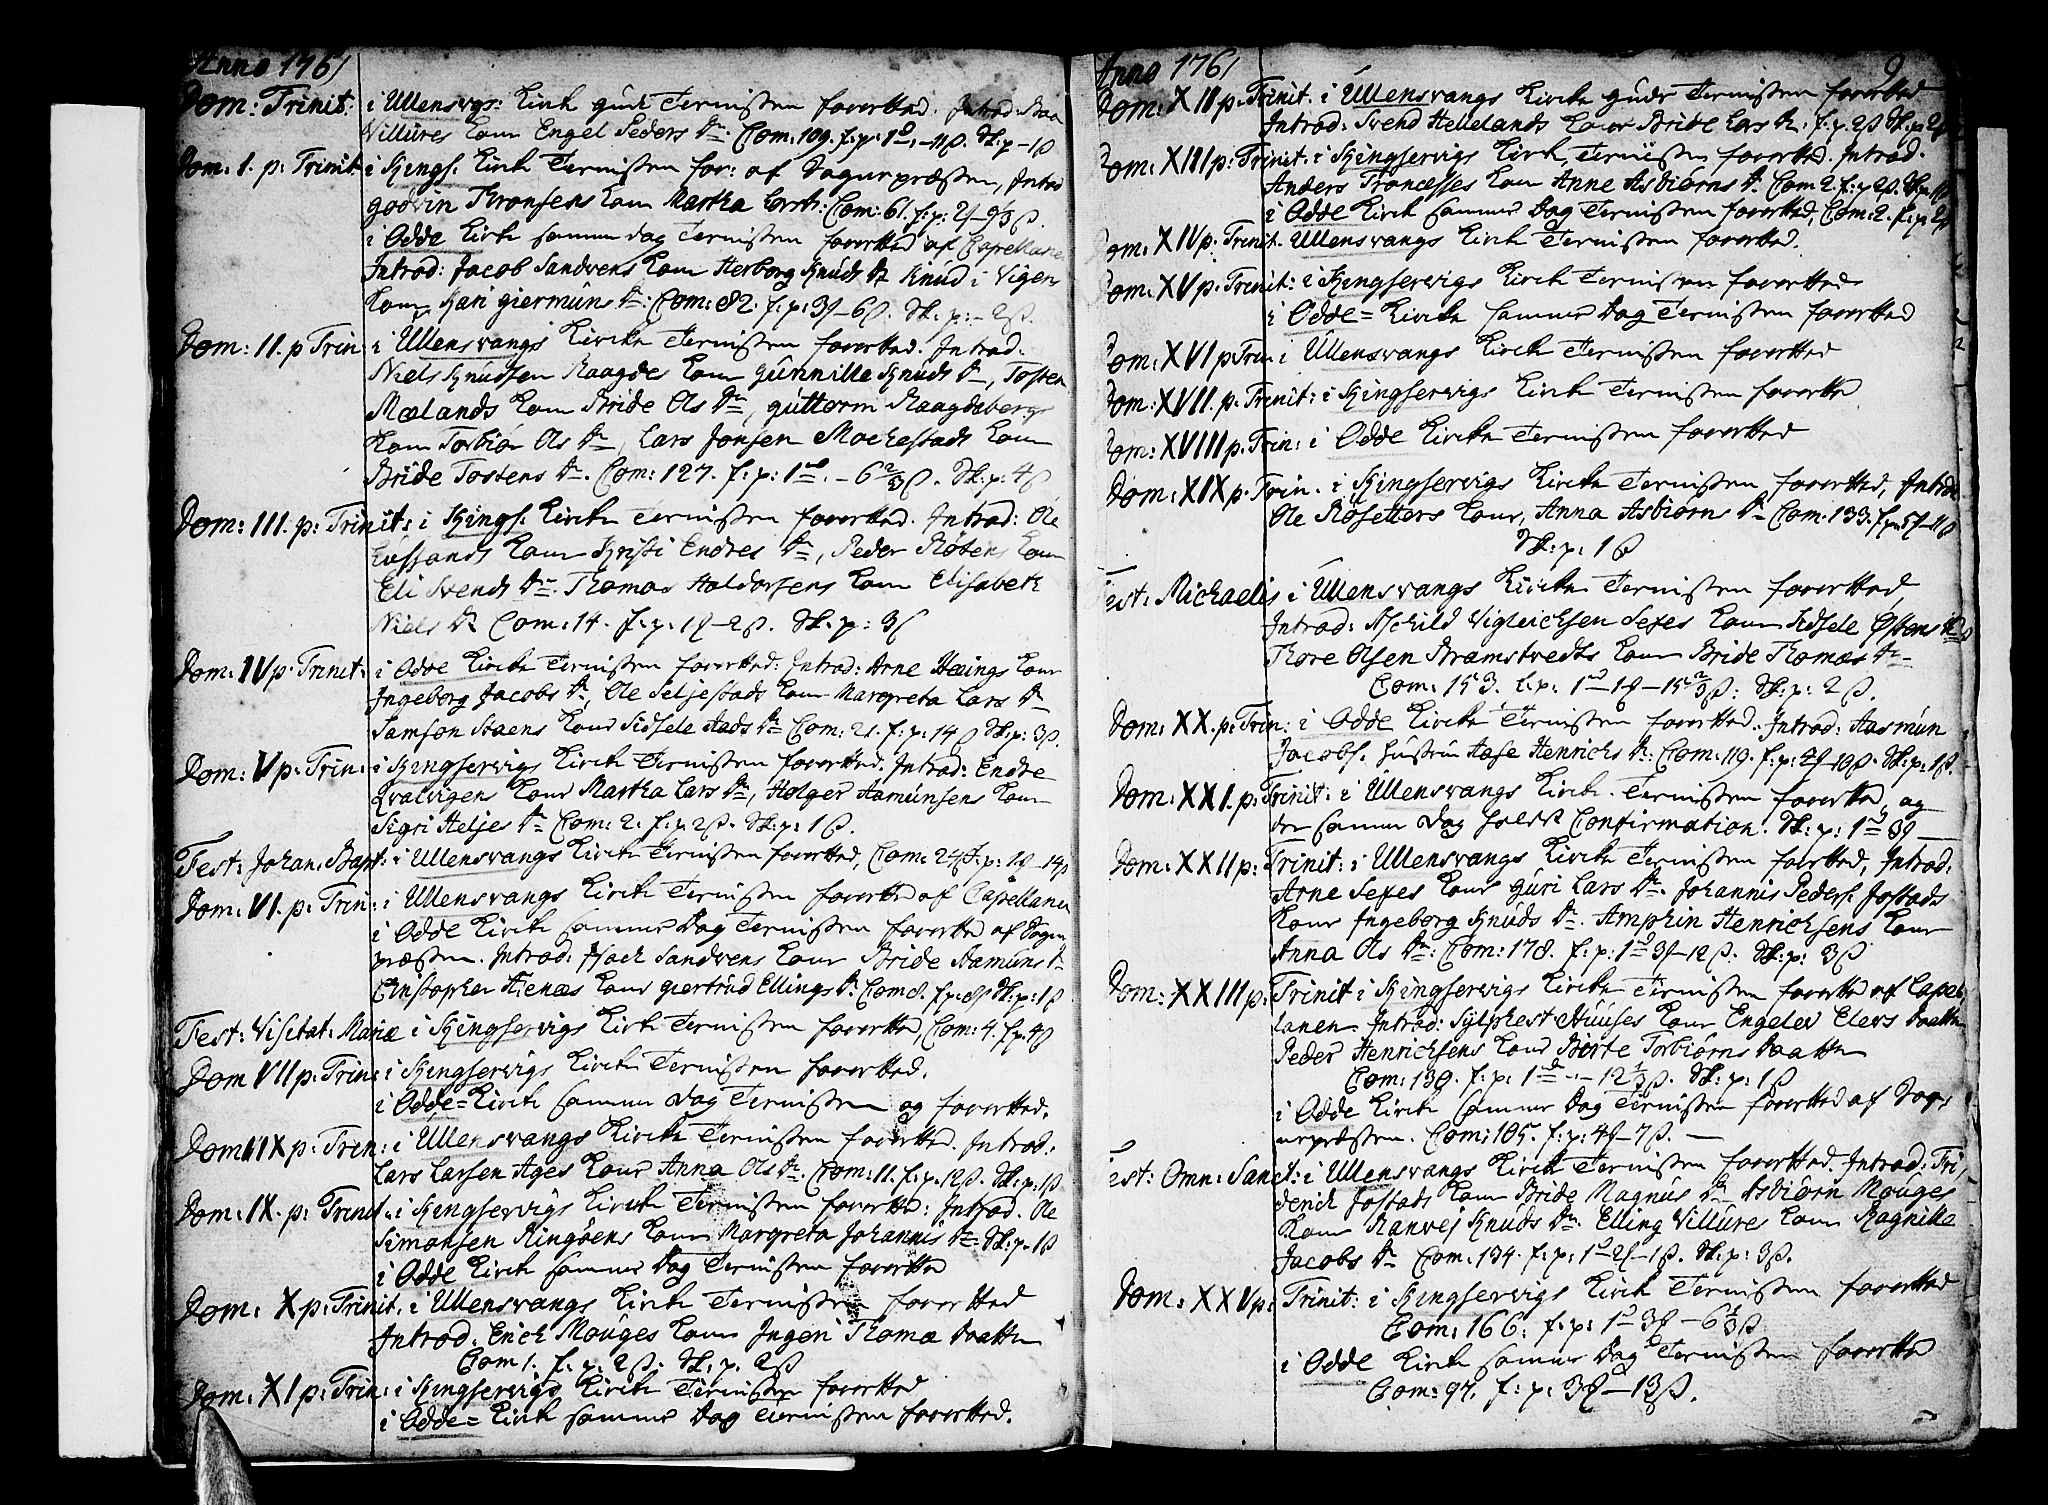 Anno 1761
Dom: Trinit: i Ullensvgs: Kirke guds Tienisten forretted. Introd:
Villures Kone Engel Peders Dr: Com: 109. f: p: 1 – 11 ß. Sk: p – 1 ß
Dom: I. p: Trinit i Kings. Kirke Tienisten for: af Sognepræsten, Introd
godvin Thronsens Kone Martha Com: 61. f: p:
i Odde Kirke samme dag Tienisten forretted af Capellanen
Introd: Jacob Sandvens Kone Herborg Knuds Dr Knud i Vigens
Kone Kari giermuns Dr: Com: 82. f: p: 3 – 6 ß. Sk: p: – 2 ß.
Dom: II. p Trin: i Ullensvangs Kirke Tienisten forretted. Introd.
Niels Knudsen Kone gunnille Knuds Dr, Tosten
Mælands Kone Bride Ols Dr, guttorm
Kone Torbiør Ols Dr, Lars Jonsen Mockestads Kone
Bride Tostens Dr. Com: 127. f: p: 1 – 6 2/3 ß. Sk: p: 4 ß
Dom: III. p: Trinit: i Kings. Kirke Tienisten forretted. Introd: Ole
Kone Kristi Endres Dr, Peder Røtens Kone
Eli Svends Dr. Thomas Haldorsens Kone Elisabeth
Niels Dr Com: 14. f. p. 1 – 2 ß. Sk: p: 3 ß
Dom: IV p. Trinit: i Odde Kirke Tienisten forretted: Introd: Arne Kone
Ingeborg Jacobs Dr, Ole Seljestads Kone Margreta Lars Dr
Samson Kone Sidsele Aads Dr Com: 21. f: p: 14 ß Sk: p: 3 ß.
Dom: V p: Trin: i Kingservigs Kirke Tienisten forretted. Introd: Endre
Qvalvigens Kone Martha Lars Dr, Holger Aamunsens Kone
Sigri Heljes Dr Com: 2. f: p. 2 ß. Sk: p: 1 ß.
Fest: Johan: Bapt: i Ullensvangs Kirke Tienisten forretted, Com:
Dom: VI. p: Trin: i Ullensvangs Kirke Tienisten forretted af Capellanen
i Odde Kirke samme Dag Tienisten forretted af Sogne
præsten. Introd: Isack Sandvens Kone Bride Aamuns Dr
Christopher Kone giertrud Ellings Dr Com 8. f: p: 8 ß Sk: p: 1 ß
Fest: Visitat: Mariæ i Kingservigs Kirke Tienisten forretted, Com: 4. f: p. 4 ß
Dom VII p: Trin: i Kingservigs Kirke Tienisten forretted.
i Odde = Kirke samme Dag Tienisten og forretted.
Dom: IIX p: Tren: i Ullensvangs Kirke Tienisten forretted. Introd:
Lars Larsen Ages Kone Anna Ols Dr. Com: 11. f. p. 12 ß. Sk: p: 1 ß
Dom: IX. p: Trinit. i Kingservigs Kirke Tienisten forretted: Introd. Ole
Simonsen Ringøens Kone Margreta Johannis Dr. Sk: p. 1 ß
i Odde Kirke samme Dag Tienisten forretted
Dom: X p: Trinit. i Ullensvangs Kirke Tienisten forretted
Introd. Erich Mouges Kone Ingeri Thomæ Daatter
Com 1. f. p. 2 ß. Sk: p. 2 ß
Dom: XI p: Trin: i Kingservigs Kirke Tienisten forretted
i Odde = Kirke samme Dag Tienisten forretted.
Anno 1761
9
Dom: XII p. Trinit. i Ullensvangs Kirke guds Tienisten forretted
Introd: Svend Hellelands Kone Bride Lars Dr. f. p. 2 ß Sk: p: 2 ß
Dom: XIII p: Trinit: i Kingservigs Kirke, Tienisten forretted. Introd.
Anders Kone Anne Asbiørns Dr Com 2. f: p 2 ß.
i Odde Kirke samme Dag Tienisten forretted, Com: 2. f: p. 2 ß
Dom: XIV p: Trinit. Ullensvangs Kirke Tienisten forretted.
Dom: XV p: Trinit: i Kingservigs Kirke Tienisten forretted
i Odde = Kirke samme Dag Tienisten forretted
Dom: XVI p Trin: i Ullensvangs Kirke Tienisten forretted
Dom: XVII. p. Trinit: i Kingservigs Kirke Tienisten forretted
Dom: XVIII p. Trin: i Odde Kirke Tienisten forretted
Dom: XIX p. Trin. i Kingservigs Kirke Tienisten forretted, Introd
Ole Røsetters Kone, Anna Asbiørns Dr Com. 133. f: p:
Sk: p: 1 ß
Fest: Michaelis i Ullensvangs Kirke Tienisten forretted,
Introd: Aschild Vigleichsen Sexes Kone Sidsele Østens Dr
Thore Olsen Kone Bride Thomæs Dr
Com: 153. f: p: 1 – 1 – 15 2/3 ß: Sk: p: 2 ß.
Dom: XX. p: Trin: i Odde Kirke Tienisten forretted. Introd: Aasmun
Jacobs. hustru Aase Henrichs Dr: Com: 119. f: p: – 10 ß. Sk: p: 1 ß.
Dom: XXI. p: Trinit: i Ullensvangs Kirke Tienisten forretted, og
den samme Dag holdt Confirmation. Sk: p: 1 3 –
Dom: XXII p: Trinit: i Ullensvangs Kirke Tienisten forretted, Introd:
Arne Sexes Kone guri Lars Dr. Johannis Peders. Jostads
Kone Ingeborg Knuds Dr. Amphin Henrichsens Kone
Anna Ols Dr: Com: 178. f: p: 1 3 – 12 ß. Sk: p: 3 ß
Dom: XXIII p: Trinit i Kingservigs Kirke Tienisten forretted af Capel
lanen Introd: Sylphest: Huuses Kone Engelev Elevs Daatter
Peder Henrichsens Kone Birte Torbiørns Daatter
Com: 139. f: p: 1 – 12 1/3 ß. Sk: p: 1 ß
i Odde Kirke samme Dag Tienisten forretted af Sog
nepræsten. Com: 105. f: p: 4 – 7 ß. –
Fest: Omn: Sanct: i Ullensvangs Kirke Tienisten forretted. Introd: Fri
derich Jostads Kone Bride Magnus Dr Asbiørn Mouges
Kone Ranvej Knuds Dr. Elling Villures Kone Ragnilla
Jacobs Dr Com: 134. f: p: 1 2 – 1 ß. Sk: p: 3 ß.
Dom: XXV p: Trinit: i Kingservigs Kirke Tienisten forretted
Com: 166: f: p: 1 3 – 6 1/3 ß
i Odde Kirke samme Dag Tienisten forretted
Com: 97. f: p: 3 – 13 ß.